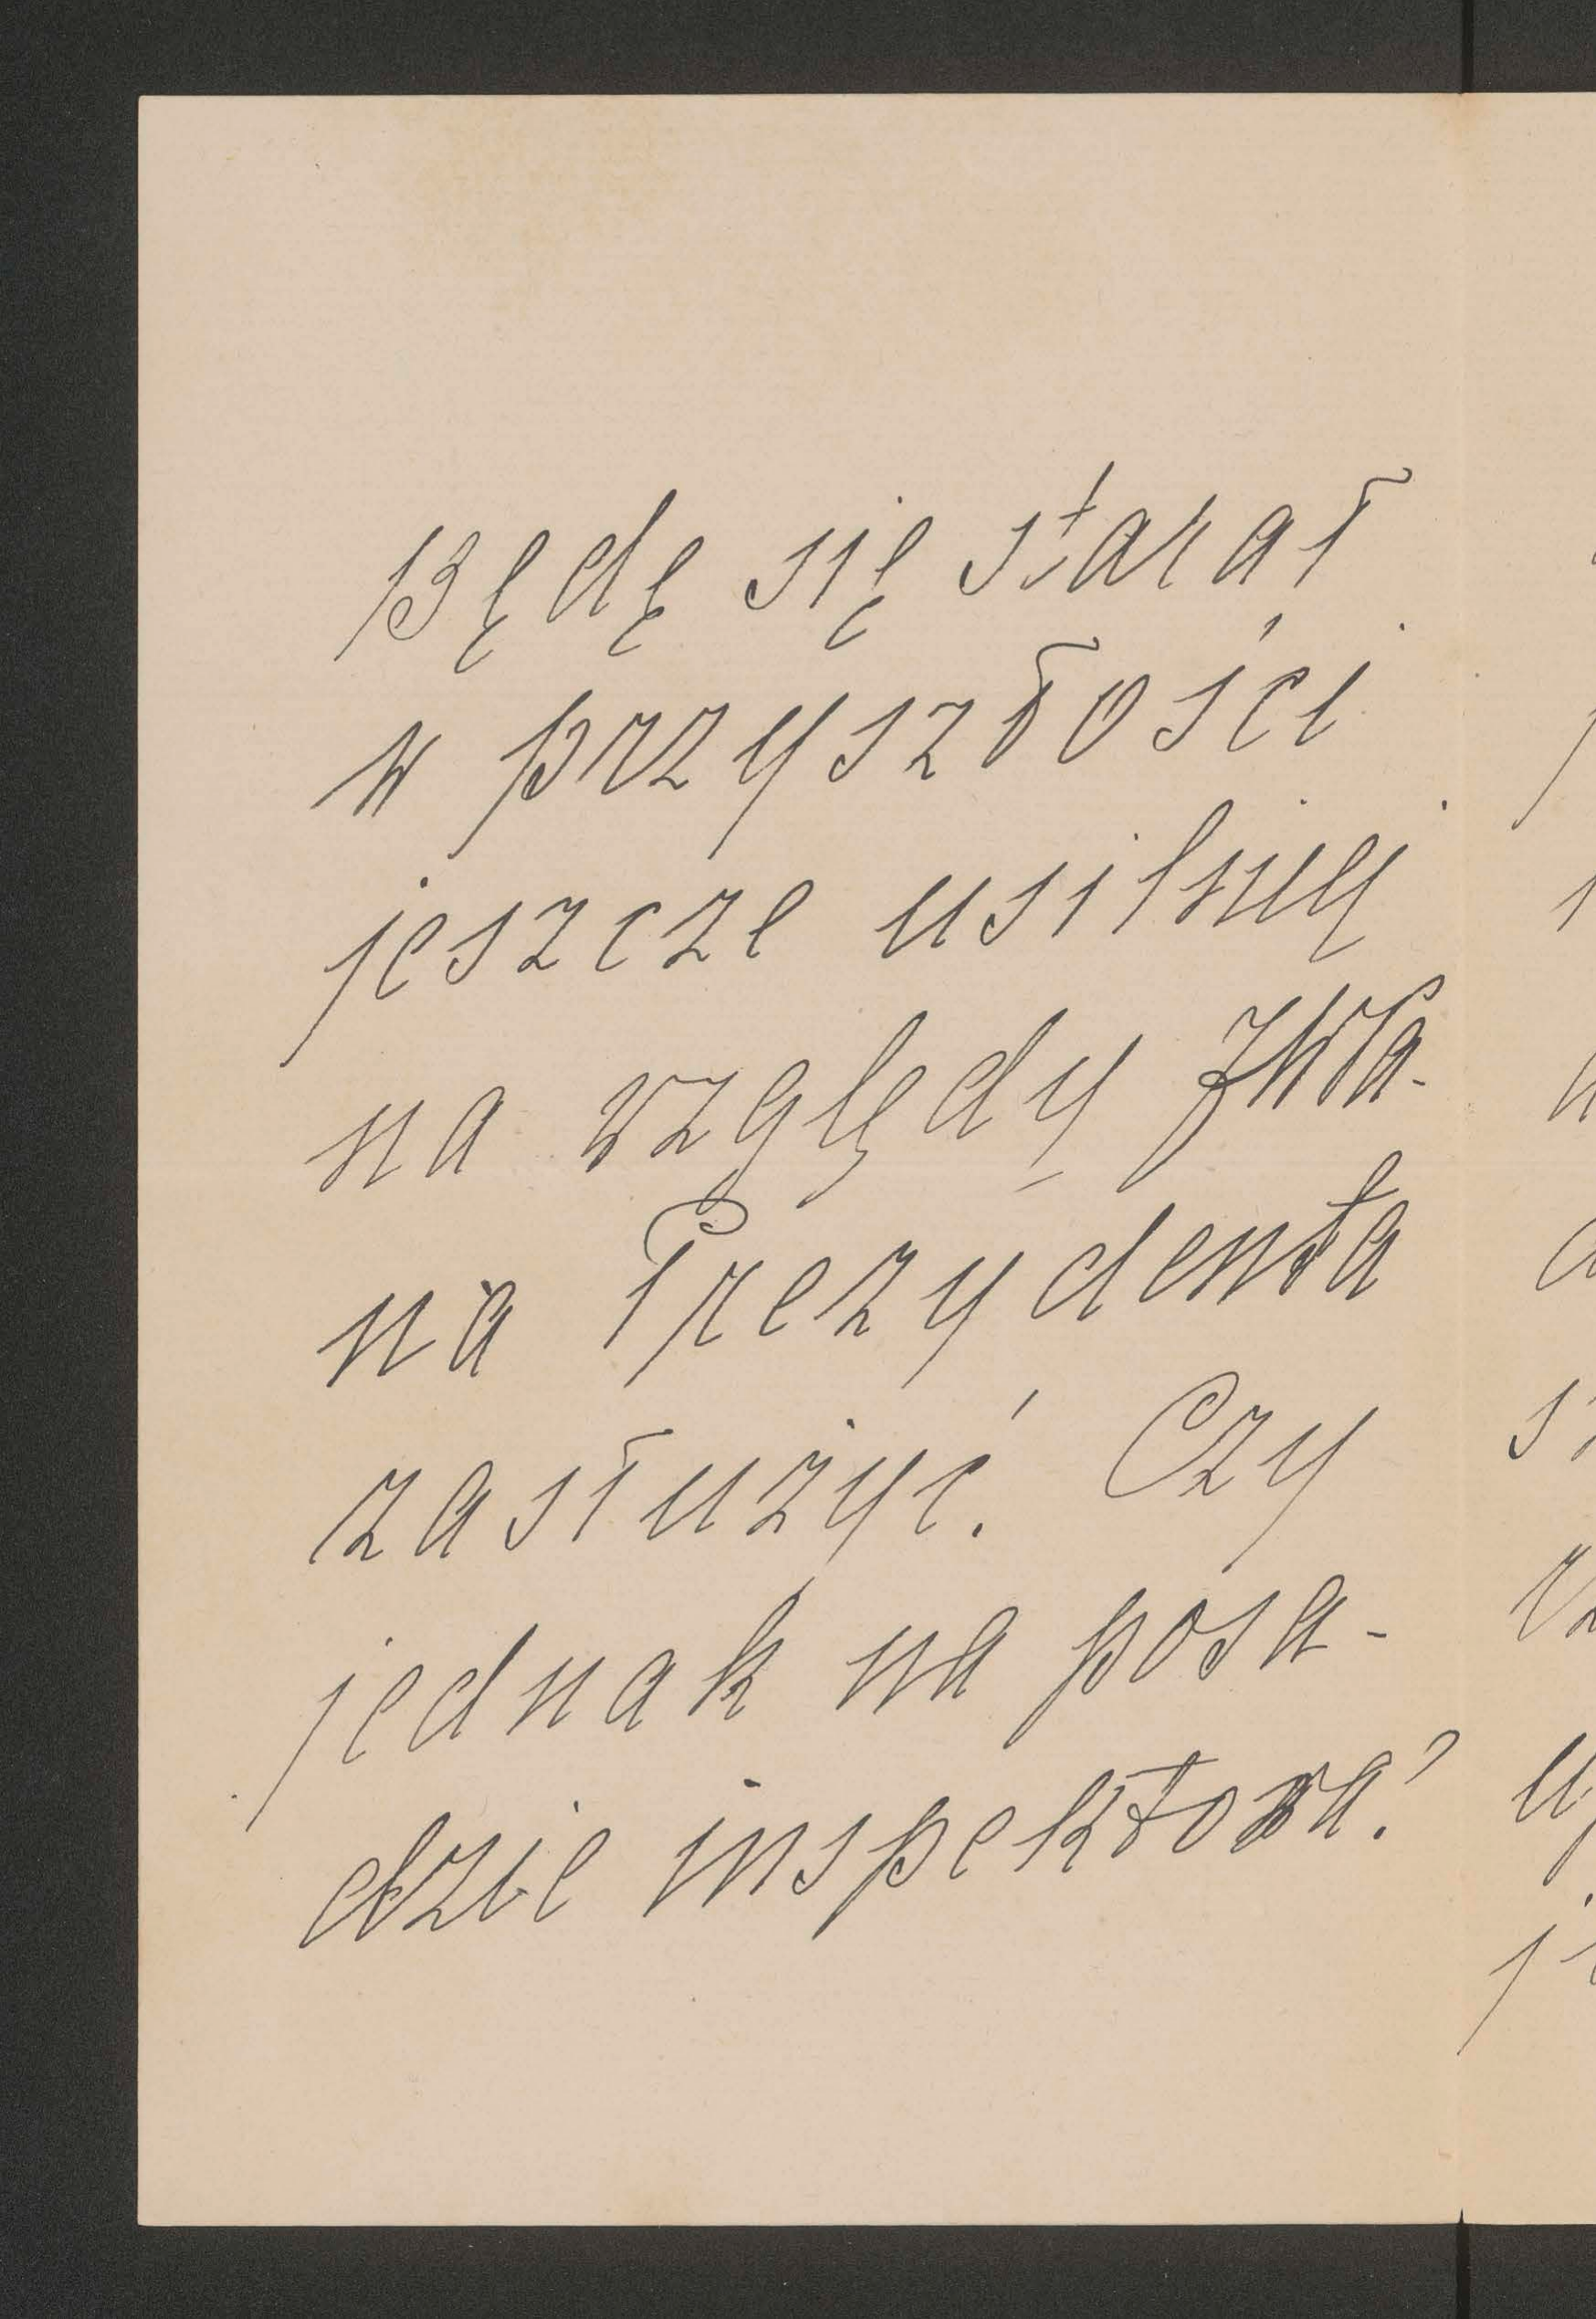 Będę się starał
w przyszłości
jeszcze usilniej
na względy JWPa-
na Prezydenta
zasłużyć. Czy
jednak na posa-
dzie inspektora?